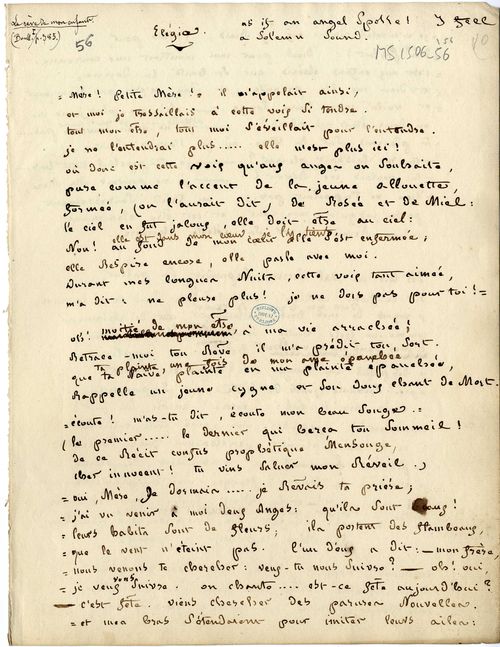 Le rêve de mon enfant
56
Elégie.
as if an angel Spoke!
a Solemn Sound.
I feel
MS1506-56
= Mère! Petite Mère! = il m'appelait ainsi,
et moi je tressaillais à cette voix si tendre.
tout mon être, tout moi S'éveillait pour l'entendre.
je ne l'entendrai plus..... elle n'est plus ici!
où donc est cette voix qu'aux anges on Souhaite,
pure comme l'accent de la jeune allouette,
formée, (on l'aurait dit,) de Rosée et de Miel:
le ciel en fut jaloux, elle doit être au ciel:
elle est dans mon cœur, je l'y sens
Non! au fond de mon cœur elle S'est enfermée;
elle Respire encore, elle parle avec moi.
Durant mes longues Nuits, cette voix tant aimée,
m'a dit: ne pleure plus! je ne dors pas pour toi! =
oh! moitié de mon être à ma vie arrachée!
Retrace-moi ton Rêve il m'a prédit ton sort.
ta plainte, une fois de mon ame épanchée
que ta Naïve plainte en ma plainte épanchée,
Rappelle un jeune cygne et Son doux chant de Mort.
= écoute! m'as-tu dit, écoute mon beau Songe. =
(le premier..... le dernier qui berça ton Sommeil!
de ce Récit confus prophétique Mensonge,
cher innocent! tu vins Saluer mon Réveil.)
= oui, Mère, Je dormais..... je Rêvais ta prière;
= j'ai vu venir à moi deux Anges: qu'ils Sont beaux!
= leurs habits Sont de fleurs; ils portent des flambeaux,
= que le vent n'éteint pas. l'un d'eux a dit: — mon frère,
= nous venons te chercher: veux-tu nous Suivre? — oh! oui,
= je veux vous Suivre. on chante.... est-ce fête aujourd'hui?
— c'est fête. viens chercher des parures Nouvelles.
= et mes bras S'étendaient pour imiter leurs ailes: